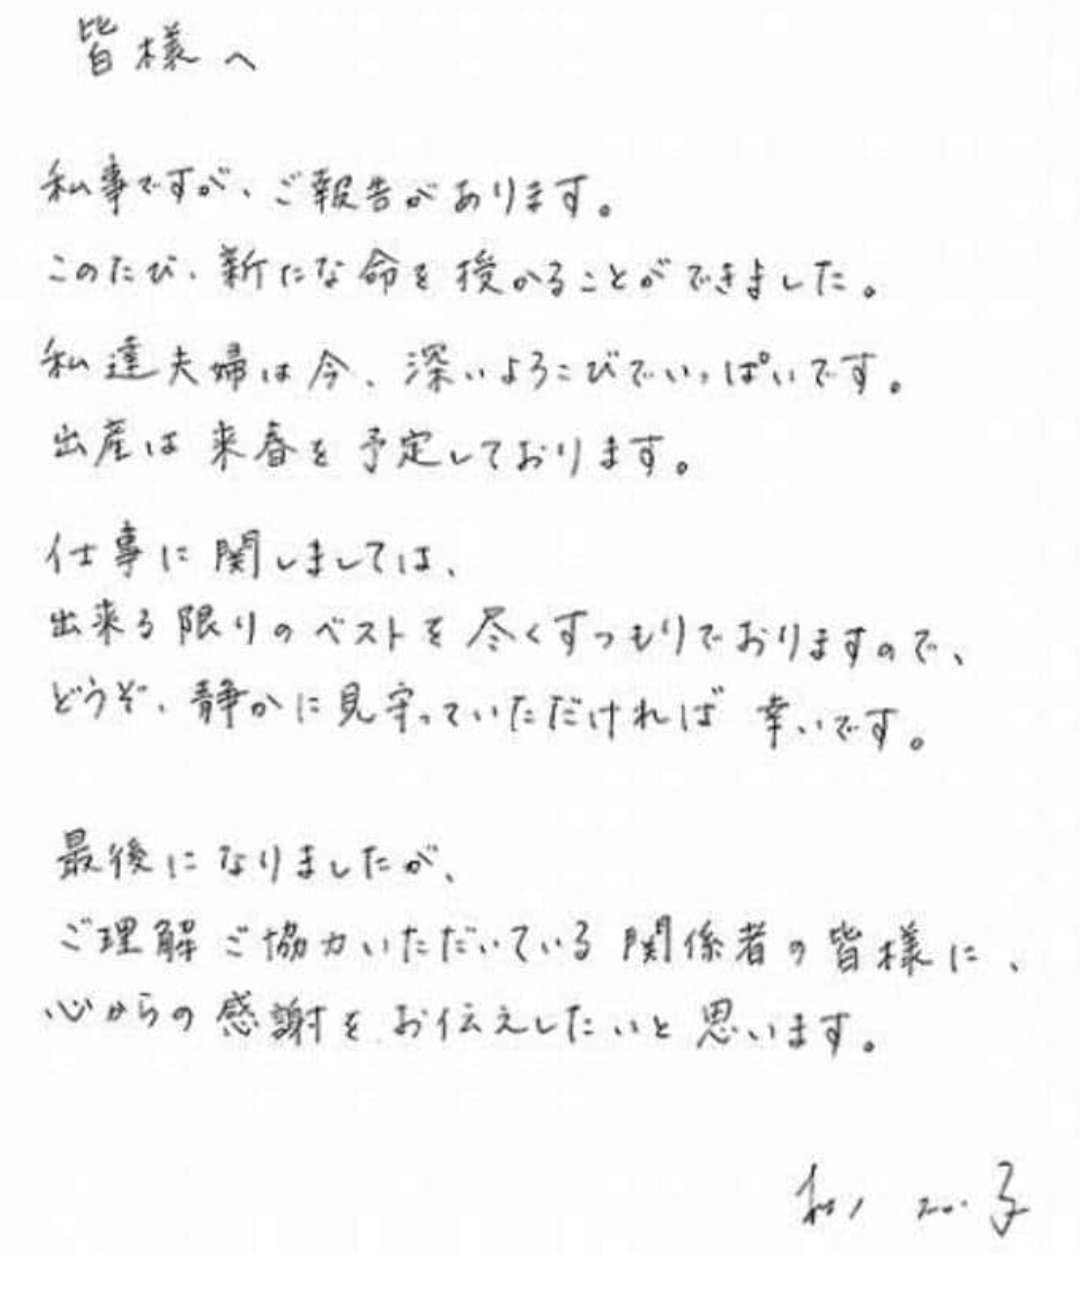 皆様へ
私事ですが、ご報告があります。
このたび、新たな命を授かることができました。
私達夫婦は今、深いよろこびでいっぱいです。
出産は来春を予定しております。
仕事に関しましては、
出来る限りのベストを尽くすつもりでおりますので、
どうぞ、静かに見守っていただければ幸いです。
最後になりましたが、
ご理解ご協力いただいている関係者の皆様に、
心からの感謝をお伝えしたいと思います。
子